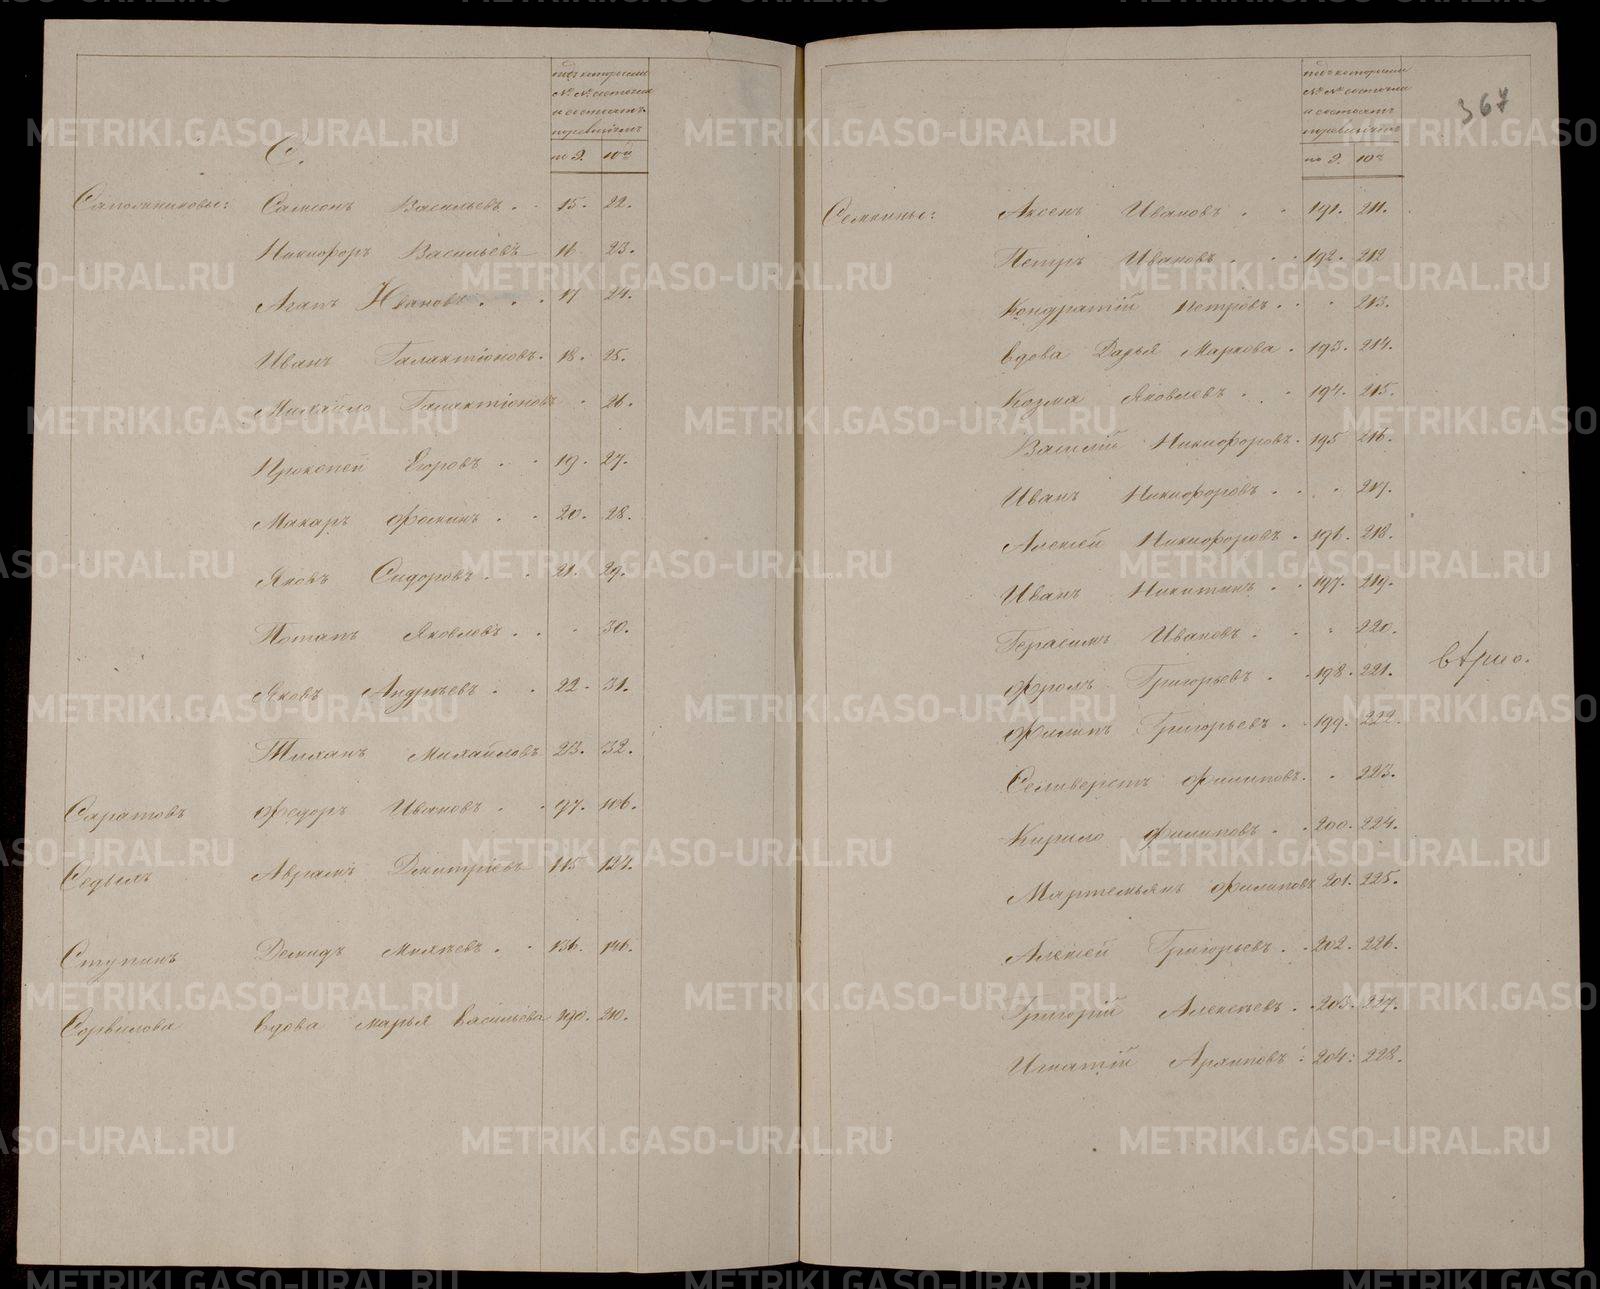 С.
подъ которыми
№ № состояли
и состоятъ
по ревизiямъ
по 9. 10й
Сапожниковы: Самсонъ Васильевъ . . 15. 22.
Никифоръ Васильевъ 16 23.
Агапъ Ивановъ . . . 17 24.
Иванъ Галактiоновъ. 18. 25.
Михайло Галактiоновъ . 26.
Прокопей Егоровъ . . 19. 27.
Макаръ Фокинъ . . 20. 28.
Яковъ Сидоровъ . . 21. 29.
Потапъ Яковлевъ . . . 30.
Яковъ Андреевъ . . 22. 31.
Тиханъ Михайловъ 23. 32.
Саратовъ Федоръ Ивановъ . . 97. 106.
Седымъ Аврамъ Дмитрiевъ 115 124.
Ступинъ Демидъ Михѣевъ . . 136. 146.
вдова Марья Васильева 190. 210.
367
подъ которыми
№ № состояли
и состоятъ
по ревизiямъ
по 9. 10й
Семкины: Аксенъ Ивановъ . . 191. 211.
Петръ Ивановъ . . . 192. 212
Кондратiй Петровъ . . . 213.
вдова Дарья Маркова . 193. 214.
Козма Яковлевъ . . . 194. 215.
Василiй Никифоровъ . 195 216.
Иванъ Никифоровъ . . . . 217.
Алексѣй Никифоровъ . 196. 218.
Иванъ Никитинъ . . 197. 219.
Герасимъ Ивановъ . . . 220.
Фролъ Григорьевъ . . 198. 221.
Филипъ Григорьевъ . . 199. 222.
Селиверстъ Филиповъ. . 223.
Кирило Филиповъ . . 200. 224.
Мартемьянъ Филиповъ 201. 225.
Алексѣй Григорьевъ . . 202. 226.
Григорiй Алексѣевъ . . 203. 227.
Игнатiй Архиповъ : 204: 228.
METRIKI.GASO-URAL.RU